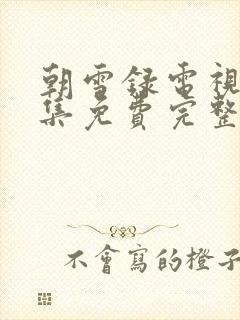 朝雪錄電視
集免費完整
不會寫的橙子